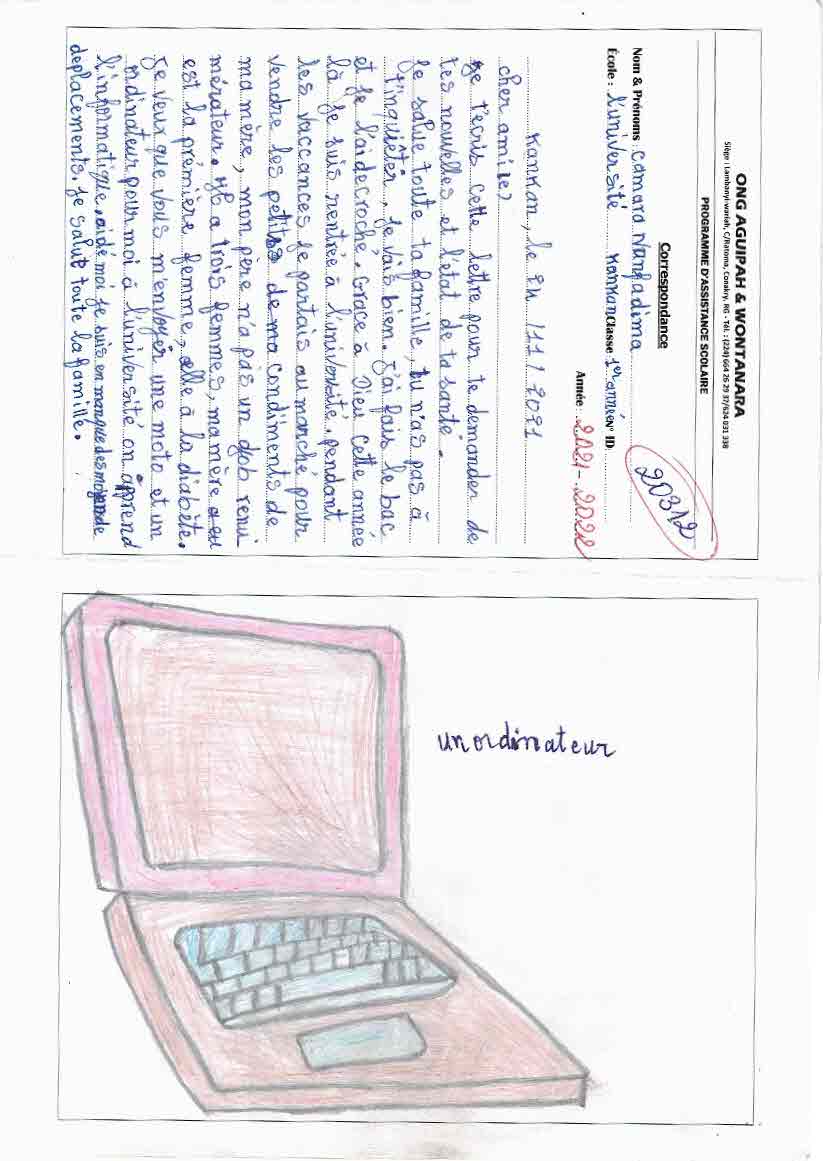 ONG AGUIPAH & WONTANARA
Siège : Lambanyi-wariah, C/Ratoma, Conakry, RG - Tél. : (224) 664 26 29 37/624 031 338
PROGRAMME D'ASSISTANCE SCOLAIRE
20312
Correspondance
Nom & Prénoms : Camara Nanfadima
École : l'université Kankan Classe 1er année N° ID
Année : 2021-2022
Kankan, le 24 /11/ 2021
cher ami(e)
Je t'écris cette lettre pour te demander de
tes nouvelles et l'état de ta santé.
Je salue toute ta famille, tu n'as pas à
t'inquiéter, Je vais bien. J'ai fais le bac
et je l'ai decroché. Grâce à Dieu cette année
là je suis rentrée à l'université, pendant
les vaccances je partais au marché pour
vendre les petits de ma condiments de
ma mère, mon père n'a pas un job renu
mérateur. Il a trois femmes, ma mère a eu
est la première femme, elle à la diabète.
Je veux que vous m'envoyer une moto et un
ordinateur pour moi à l'université on apprend
l'informatique, aidé moi je suis en manque des moyens de
deplacements. Je salut toute la famille.
un ordinateur